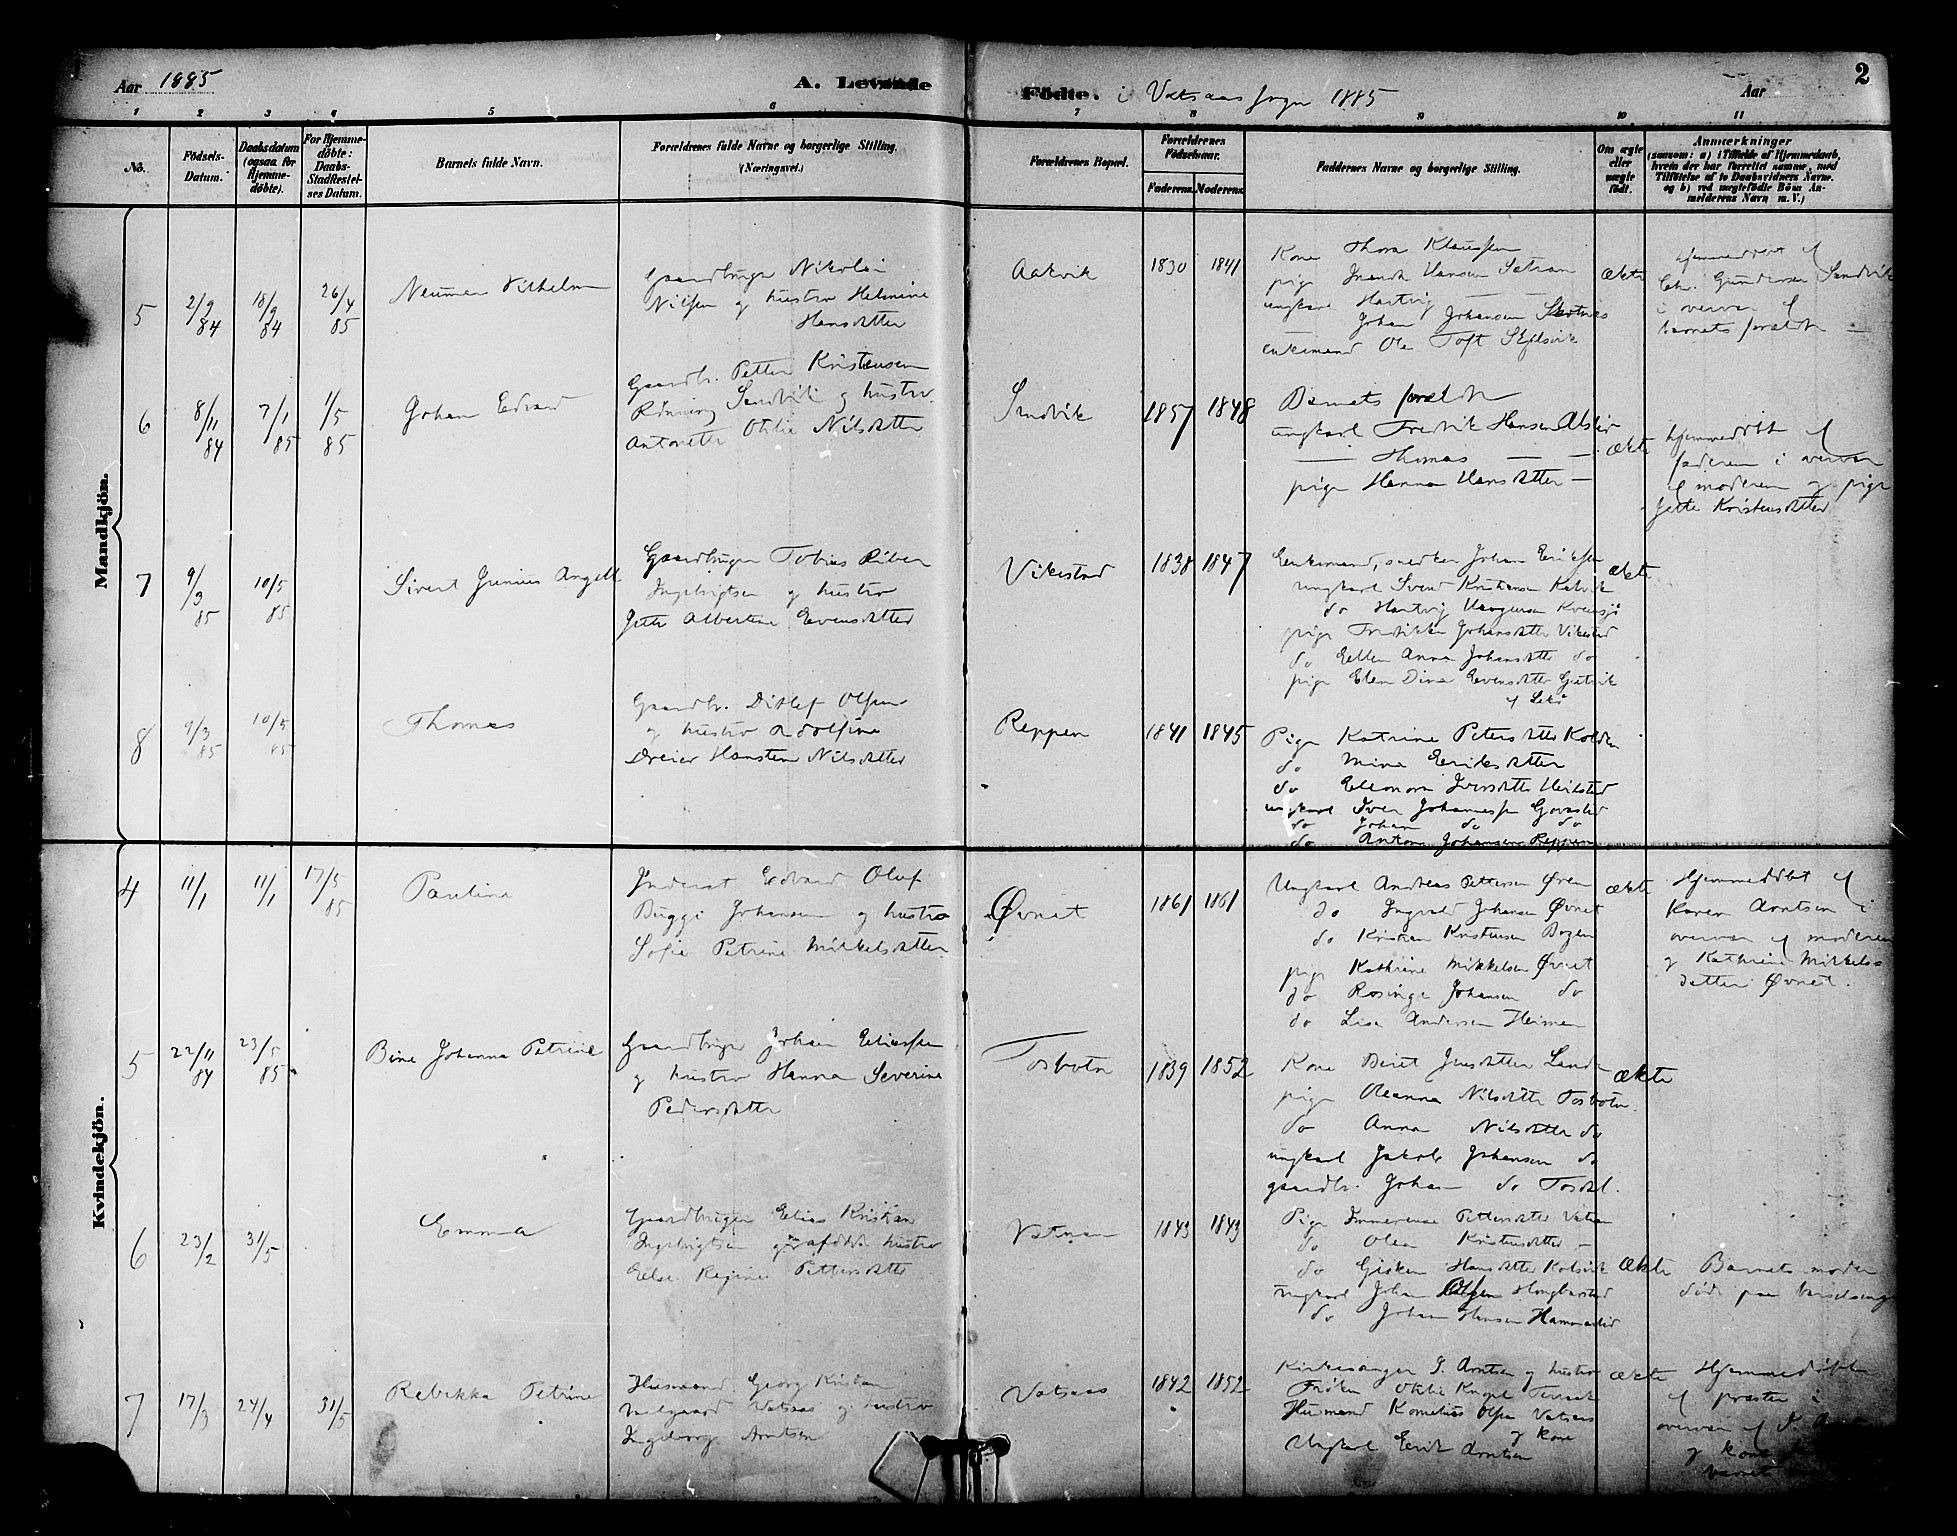 Aar 1885
A. Levende
Födte. i Vatsaas Sogn 1885
Aar
2
1 2 3 4 5 6 7 8 9 10 11
No.
Födsels-
Datum.
Daabsdatum
(ogsaa for
Hjemme-
döbte).
For Hjemme-
döbte:
Daabs-
Stadfæstel-
ses Datum.
Barnets fulde Navn.
Forældrenes fulde Navne og borgerlige Stilling.
(Næringsvei.)
Forældrenes Bopæl.
Forældrenes
Födselsaar.
Faderens. Moderens.
Faddernes Navne og borgerlige Stilling.
Om ægte
eller
uægte
födt.
Anmærkninger
(saasom: a) i Tilfælde af Hjemmedaab,
hvem der har forrettet samme, med
Tilföielse af to Daabsvidners Navne.
og b) ved uægtefödte Börn An-
melderens Navn m. V.)
Mandkjön.
5
2/9 84
18/9 84
26/4 85
Neumen Vilhelm
Gaardbruger Nikolai
Nilsen og hustro Helmine
Hansdatter
Aakvik
1830 1841
Kone Thora Klaussen
pige Hansen
ungkarl Hartvig
Johan Johansen
enkemand Ole Toft
ækte
hjemmedöbt af
Chr. Gundersen Sandvik
i overvær af
barnets forældre
6
8/11 84
7/1 85
1/5 85
Johan Edvard
Gaardbr. Petter Kristensen
Rönning Sandvik og hustro
Antonette Otilie Nilsdatter
Sandvik
1857 1848
Barnets forældre
ungkarl Fredrik Hansen
— Thomas — —
pige Hanna Hansdatter —
ækte
hjemmedöbt af
faderen i overvær
af moderen og pige
Jette Kristensdatter
7
9/3 85
10/5 85
Sivert Junius Angell
Gaardbruger Tobias Riber
Ingebrigtsen og hustro
Jette Albertine Evensdatter
Vikestad
1838 1847
Enkemand, snedker Johan Eriksen
ungkarl Svend Kristiansen Kalvik
do Hartvig
pige Fredrikke Johansdatter Vikestad
do Ellen Anna Johansdatter do
pige Elen Dina Evensdatter
af Lekö
ækte
8
9/3 85
10/5 85
Thomas
Gaardbr. Ditlef Olsen
og hustro Adolfine
Dreier Hansten Nilsdatter
Reppen
1841 1845
Pige Katrine Petersdatter Kolden
do Mina Eriksdatter
do Elleonora Iversdatter
ungkarl Iver Johannessen
do Johan do do
do Anton Johansen Reppen
Kvindekjön.
4
11/1
11/1
17/5 85
Pauline
Inderst Edvard Oluf
Bugge Johansen og hustro
Sofie Petrine Mikkelsdatter
Övnet
1861 1861
Ungkarl Andreas Pettersen Ören
do Ingvald Johansen Övnet
do Kristian Kristensen Bogen
pige Kathrine Mikkelsen Övnet
do Rosinge Johansen do
do Lise Andersen Heimen
ækte
Hjemmedöbt af
Karen Arntsen i
overvær af moderen
og Kathrine Mikkels-
datter Övnet.
5
22/11 84
23/5 85
Bina Johanna Petrine
Gaardbruger Johan Eliassen
og hustro Hanna Severine
Pedersdatter
Tosbotn
1839 1852
Kone Beret Jensdatter Lande
pige Oleanna Nilsdatter Tosbotn.
do Anna Nilsdatter do
ungkarl Jakob Johansen do
gaardbr. Johan do Tosdal.
ækte
6
23/2
31/5
Emma
Gaardbruger Elias Kristian
Ingebrigtsen og afdöde hustro
Else Regine Pettersdatter
Vatnan
1843 1843
Pige Immerense Pettersdatter Vatnan
do Olea Kristensdatter —
do Gisken Hansdatter Kalvik
ungkarl Johan Olsen
do Johan Hansen
ækte
Barnets moder
döde paa barselseng
7
17/3
24/4
31/5
Rebekka Petrine
Husmand Georg Kristian
Vatsaas og hustro
Ingeborg Arntsen
Vatsaas
1842 1852
Kirkesanger J. Arntsen og hustro
Fröken
Husmand Kornelius Olsen Vatsaas
og kone
Ungkarl Erik Arntsen
ækte
Hjemmedöbt
af presten i
overvær af J.
og kone